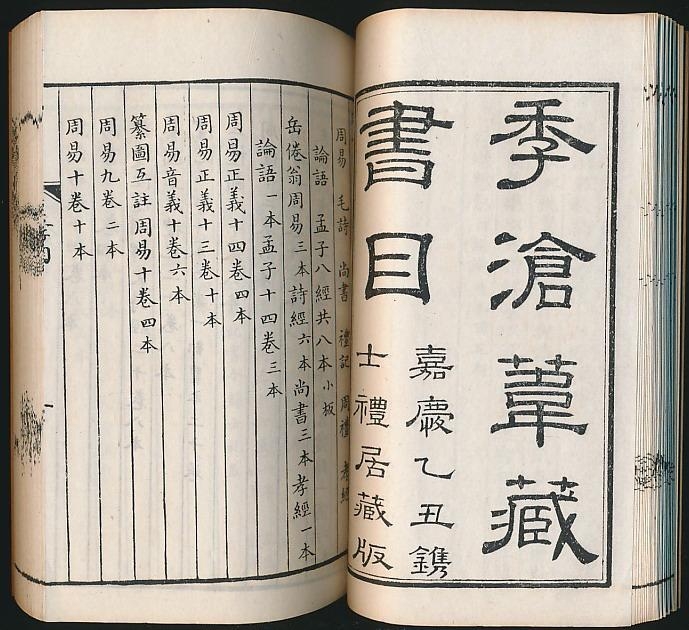 季滄葦藏
書目
嘉慶乙丑鐫
士禮居藏版
周易 毛詩 尚書 禮記 周禮 孝經
論語 孟子八經共八本小板
岳倦翁周易三本詩經六本尚書三本孝經一本
論語一本孟子十四卷三本
周易正義十四卷四本
周易正義十三卷十本
周易音義十卷六本
纂圖互註周易十卷四本
周易九卷二本
周易十卷十本